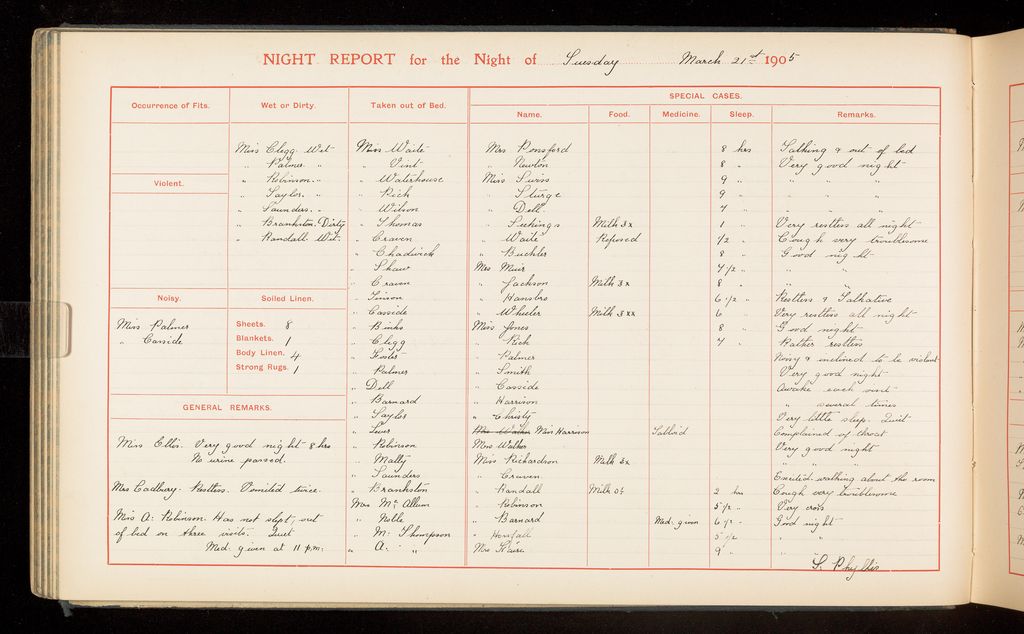 NIGHT REPORT for the Night of Tuesday March 21st 1905
Occurrence of Fits.
Wet or Dirty.
Taken out of Bed.
SPECIAL CASES.
Name.
Food.
Medicine.
Sleep.
Remarks.
Miss Clegg. Wet
" Palmer "
" Robinson "
" Sayles "
" Saunders "
" Brankston. Dirty
" Randall. Wet.
Violent.
Noisy.
Miss Palmer
" Casside
Soiled Linen.
Sheets. 8
Blankets. 1
Body Linen. 4
Strong Rugs. 1
GENERAL REMARKS.
Miss Ellis. Very good night 8 hrs
No urine passed.
Mrs Cadbury. Restless. Vomited twice.
Miss A. Robinson. Has not slept, out
of bed on three visits. Quiet
Med: given at 11 p.m.
Miss Waite
" Vint
" Waterhouse
" Rich
" Wilson
" Thomas
" Craven
" Chadwick
" Shaw
" Craven
" Casside
" Binks
" Clegg
" Foster
" Palmer
" Dell
" Barnard
" Sayles
" Robinson
" Maltby
" Saunders
" Brankston
Mrs Mc Allum
" Noble
" M. Thompson
" A. "
Mrs Ponsford 8 hrs Talking & out of bed
" Newton 8 " Very good night
Miss Swiss 9 " " " "
" Sturge 9 " " " "
" Dell 4 " " " "
" Seekings Milk 3x 1 " Very restless all night
" Waite Refused 1/2 " Cough very troublesome
" Buchler 8 " Good night
Mrs Muir 4 1/2 " " "
" Jackson Milk 3x 8 " " "
" Hansbro 6 1/2 " Restless & Talkative
" Wheeler Milk 3xx 6 " Very restless all night
Miss Jones 8 " Good night
" Rich 4 " Rather restless
" Palmer Noisy & inclined to be violent
" Smith Very good night
" Casside Awake each visit
" Harrison " several times
" Christy Very little sleep. Quiet
Mrs Walker Miss Harrison Complained of throat
Mrs Walker Very good night
Miss Richardson Milk 3x " " "
" Craven Excited. walking about the room
" Randall Milk 2 hrs Cough very troublesome
" Robinson 5 1/2 " Very cross
" Barnard Med: given 6 1/2 " Good night
" Horsfall 5 1/2 " " "
Mrs 9 " " "
S. Phyllis